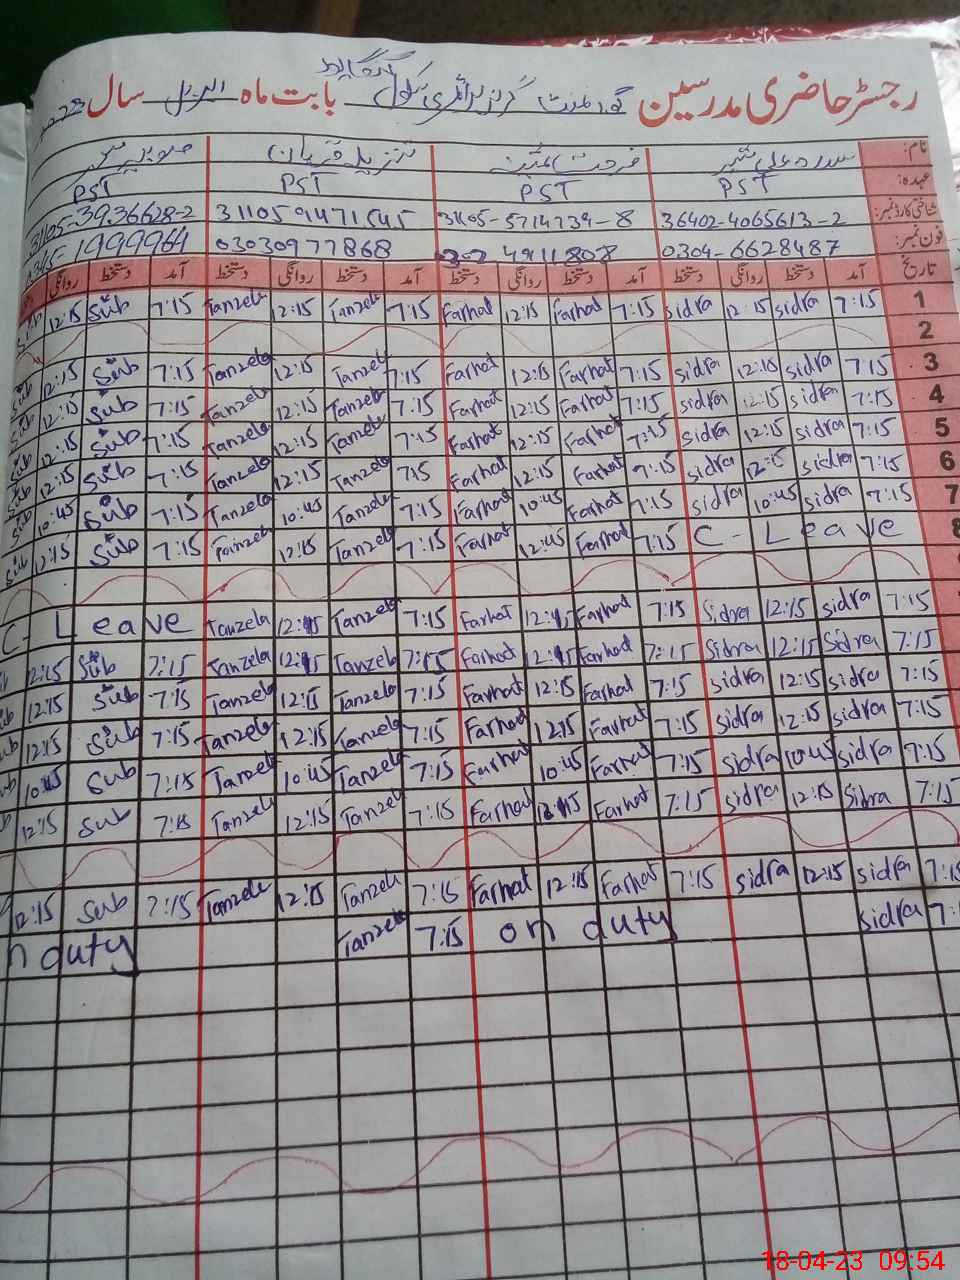 رجسٹر حاضری مدرسین گورنمنٹ گرلز پرائمری سکول بابت ماہ اپریل سال
نام: سدرہ علی شیر فرحت متین تنزیلہ قربان
عہدہ: PST PST PST PST
شناختی کارڈ نمبر: 36402-4065613-2 31105-5714739-8 3110591471545 31105-3936628-2
فون نمبر: 0304-6628487 0302 4911808 03030977868 0345-1999964
تاریخ آمد دستخط روانگی دستخط آمد دستخط روانگی دستخط آمد دستخط روانگی دستخط آمد دستخط روانگی
12:15 Sub 7:15 Tanzela 12:15 Tanzela 7:15 Farhat 12:15 Farhat 7:15 sidra 12:15 sidra 7:15 1
2
Sub 12:15 Sub 7:15 Tanzela 12:15 Tanzela 7:15 Farhat 12:15 Farhat 7:15 sidra 12:15 sidra 7:15 3
Sub 12:15 Sub 7:15 Tanzela 12:15 Tanzela 7:15 Farhat 12:15 Farhat 7:15 sidra 12:15 sidra 7:15 4
Sub 12:15 Sub 7:15 Tanzela 12:15 Tanzela 7:15 Farhat 12:15 Farhat 7:15 sidra 12:15 sidra 7:15 5
Sub 12:15 Sub 7:15 Tanzela 12:15 Tanzela 715 Farhat 12:15 Farhat 7:15 sidra 12:15 sidra 7:15 6
Sub 10:45 Sub 7:15 Tanzela 10:45 Tanzela 7:15 Farhat 10:45 Farhat 7:15 sidra 10:45 sidra 7:15 7
Sub 12:15 Sub 7:15 Tainzela 12:15 Tanzela 7:15 Farhat 12:45 Farhat 7:15 C - Leave 8
C- Leave Tanzela 12:15 Tanzela 7:15 Farhat 12:15 Farhat 7:15 Sidra 12:15 sidra 7:15
12:15 Sub 7:15 Tanzela 12:15 Tanzela 7:15 Farhat 12:15 Farhat 7:15 Sidra 12:15 Sidra 7:15
Sub 12:15 Sub 7:15 Tanzela 12:15 Tanzela 7:15 Farhat 12:15 Farhat 7:15 sidra 12:15 sidra 7:15
12:15 Sub 7:15 Tanzela 12:15 Tanzela 7:15 Farhat 1215 Farhat 7:15 sidra 12:15 sidra 7:15
10:45 Sub 7:15 Tanzela 10:45 Tanzela 7:15 Farhat 10:45 Farhat 7:15 sidra 10:45 sidra 7:15
12:15 Sub 7:15 Tanzela 12:15 Tanzela 7:15 Farhat 12:15 Farhat 7:15 sidra 12:15 Sidra 7:15
12:15 Sub 7:15 Tanzela 12:15 Tanzela 7:15 Farhat 12:15 Farhat 7:15 sidra 12:15 sidra 7:15
n duty Tanzela 7:15 on duty sidra 7:1
18-04-23 09:54